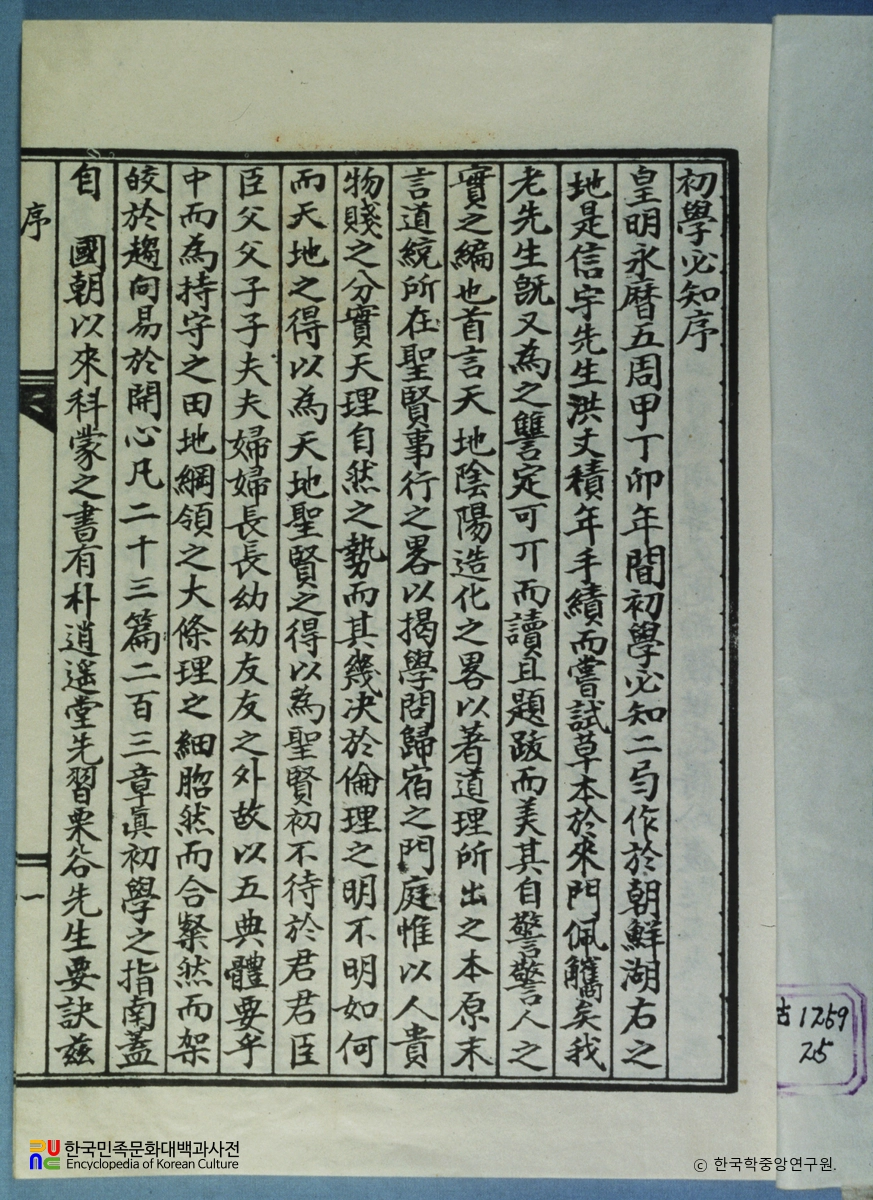 初學必知序
皇明永曆五周甲丁卯年間初學必知二弓作於朝鮮湖右之
地是信宇先生洪丈積年手績而嘗試草本於來門佩觿矣我
老先生旣又為之讐定可丌而讀且題跋而美其自警警人之
實之編也首言天地陰陽造化之畧以著道理所出之本原末
言道統所在聖賢事行之畧以揭學問歸宿之門庭惟以人貴
物賤之分實天理自然之勢而其幾决於倫理之明不明如何
而天地之得以為天地聖賢之得以為聖賢初不待於君君臣
臣父父子子夫夫婦婦長長幼幼友友之外故以五典體要乎
中而為持守之田地綱領之大條理之細脗然而合粲然而架
皎於趨向易於開心凡二十三篇二百三章眞初學之指南蓋
自 國朝以來科蒙之書有朴逍遥堂先習栗谷先生要訣玆
序
一
古 1259
25
한국민족문화대백과사전
Encyclopedia of Korean Culture
© 한국학중앙연구원.